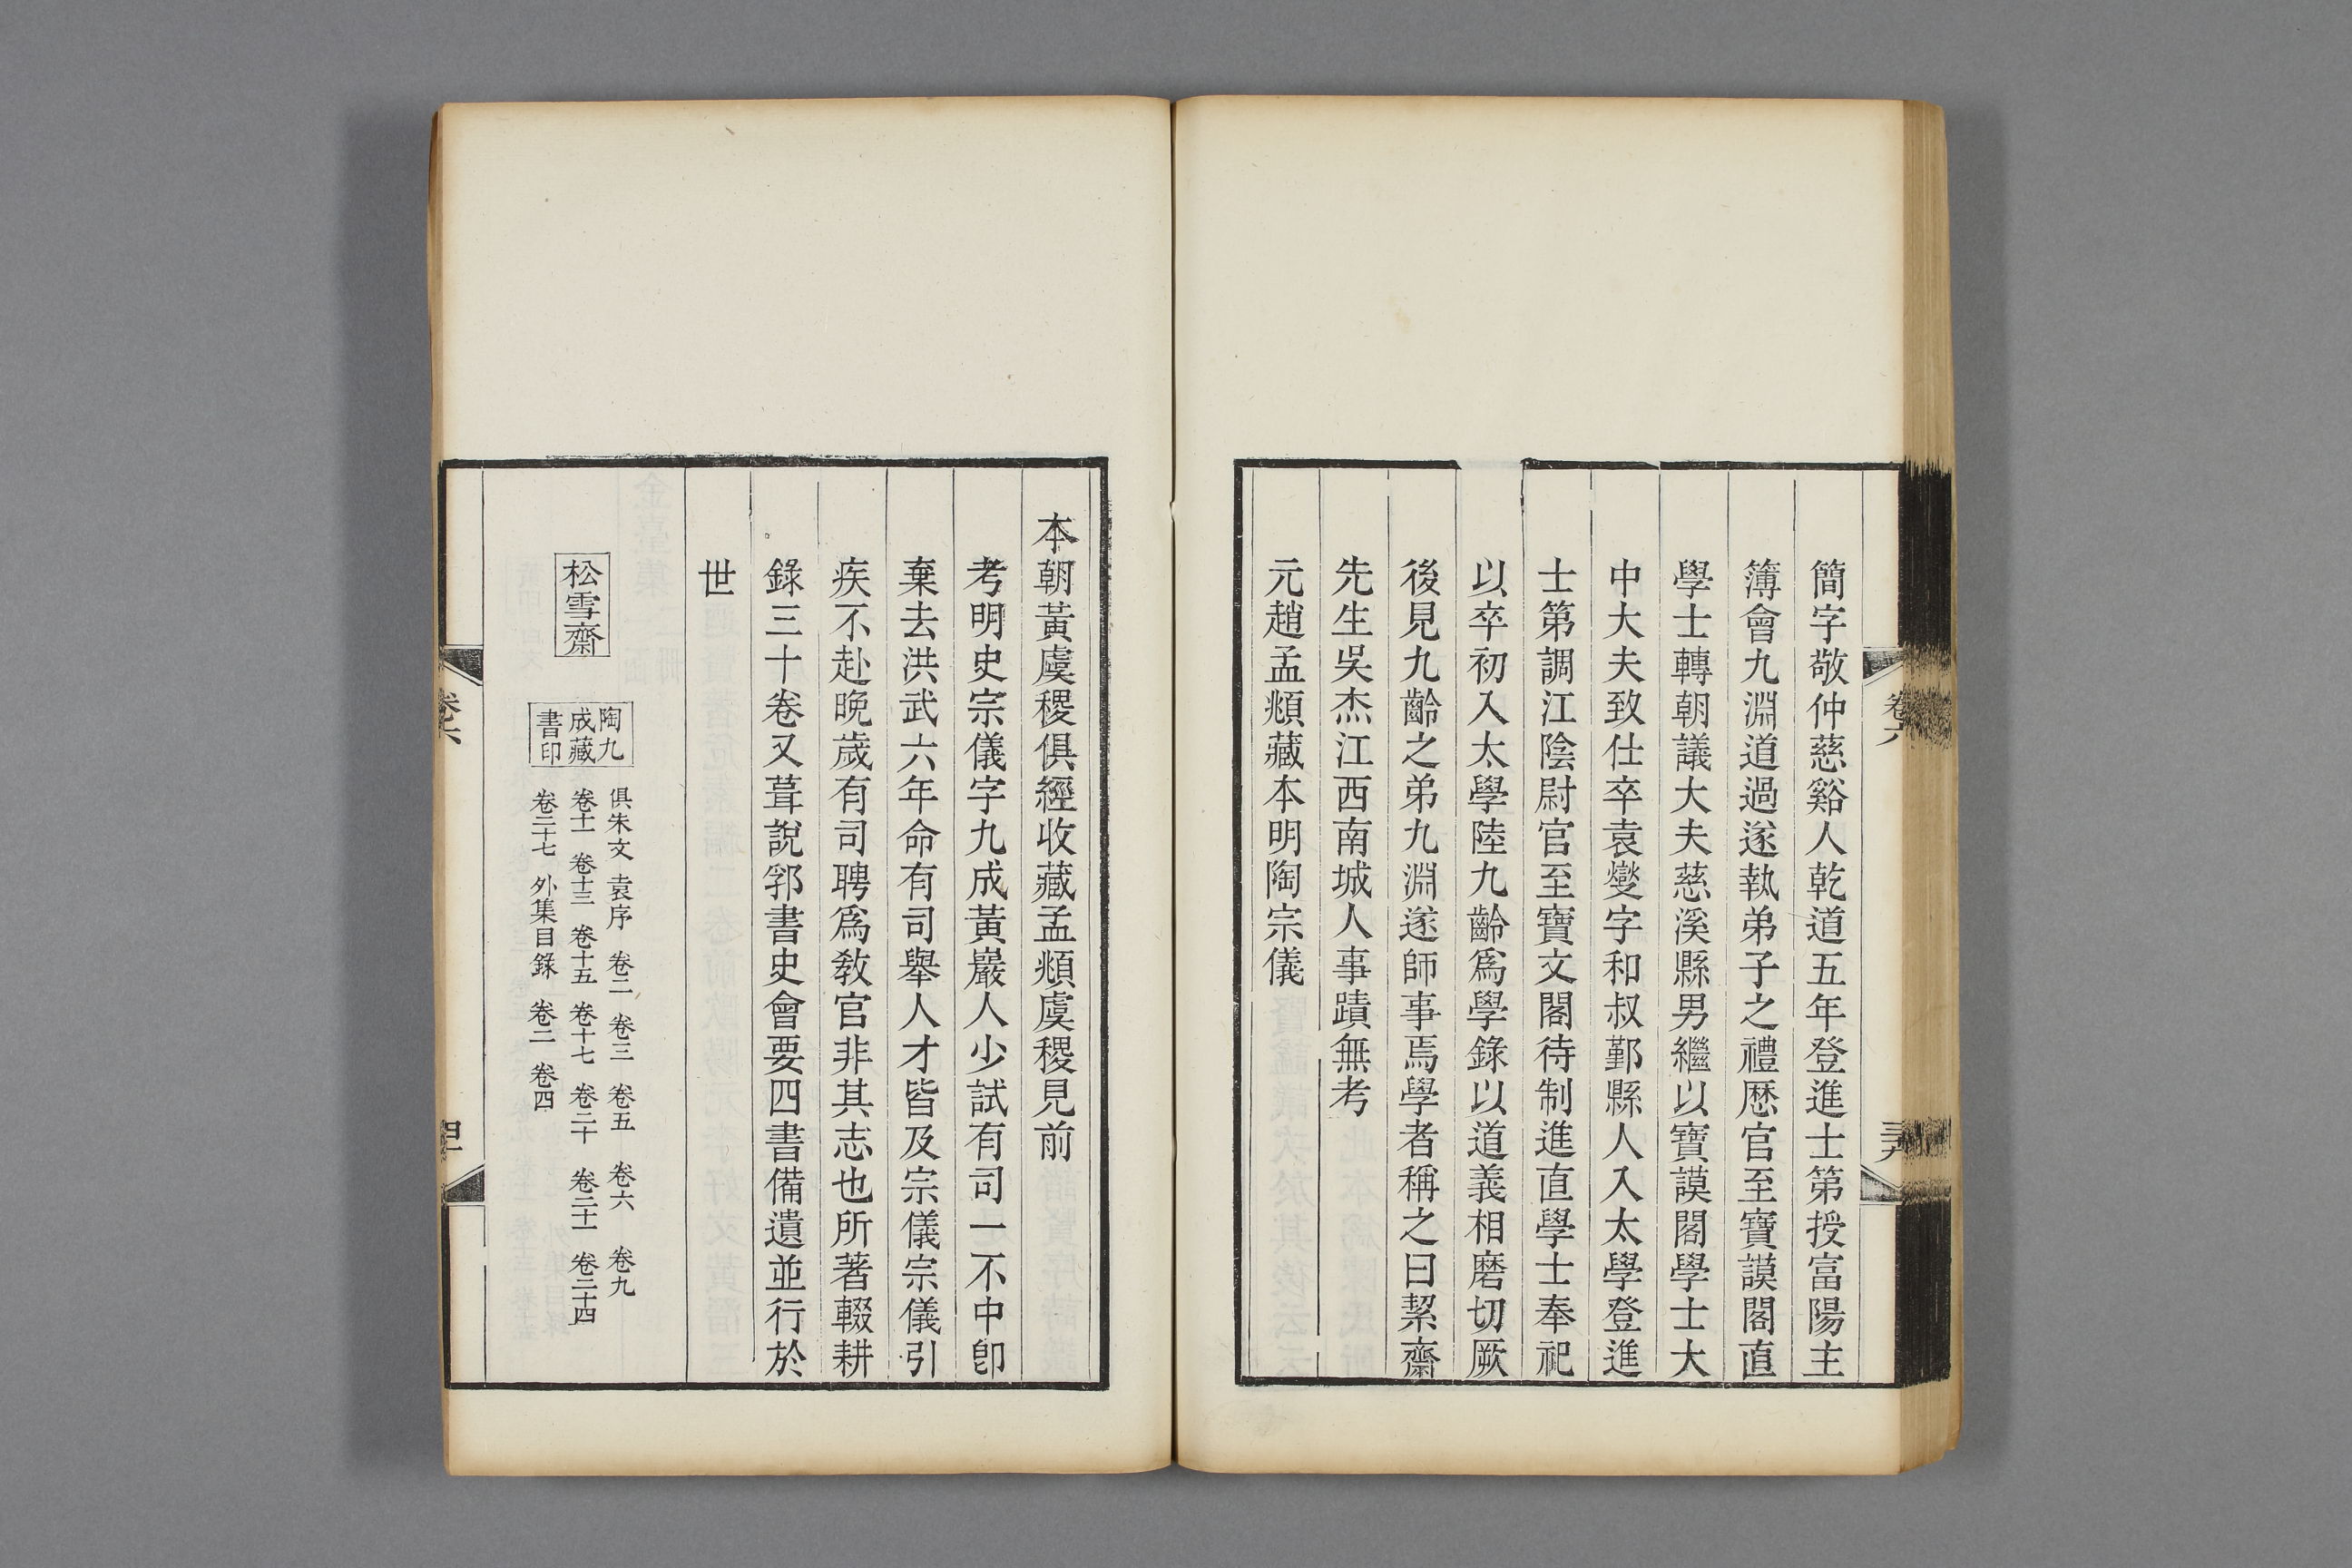 簡字敬仲慈谿人乾道五年登進士第授富陽主
簿會九淵道過遂執弟子之禮歷官至寶謨閣直
學士轉朝議大夫慈溪縣男繼以寶謨閣學士大
中大夫致仕卒袁燮字和叔鄞縣人入太學登進
士第調江陰尉官至寶文閣待制進直學士奉祀
以卒初入太學陸九齡爲學錄以道義相磨切厥
後見九齡之弟九淵遂師事焉學者稱之曰絜齋
先生吳杰江西南城人事蹟無考
元趙孟頫藏本明陶宗儀
本朝黃虞稷俱經收藏孟頫虞稷見前
考明史宗儀字九成黃巖人少試有司一不中卽
棄去洪武六年命有司舉人才皆及宗儀宗儀引
疾不赴晚歲有司聘爲教官非其志也所著輟耕
錄三十卷又葺說郛書史會要四書備遺並行於
世
松雪齋
陶九
成藏
書印
俱朱文 袁序 卷二 卷三 卷五 卷六 卷九
卷十一 卷十三 卷十五 卷十七 卷二十 卷二十一 卷二十四
卷二十七 外集目錄 卷二 卷四
卷六